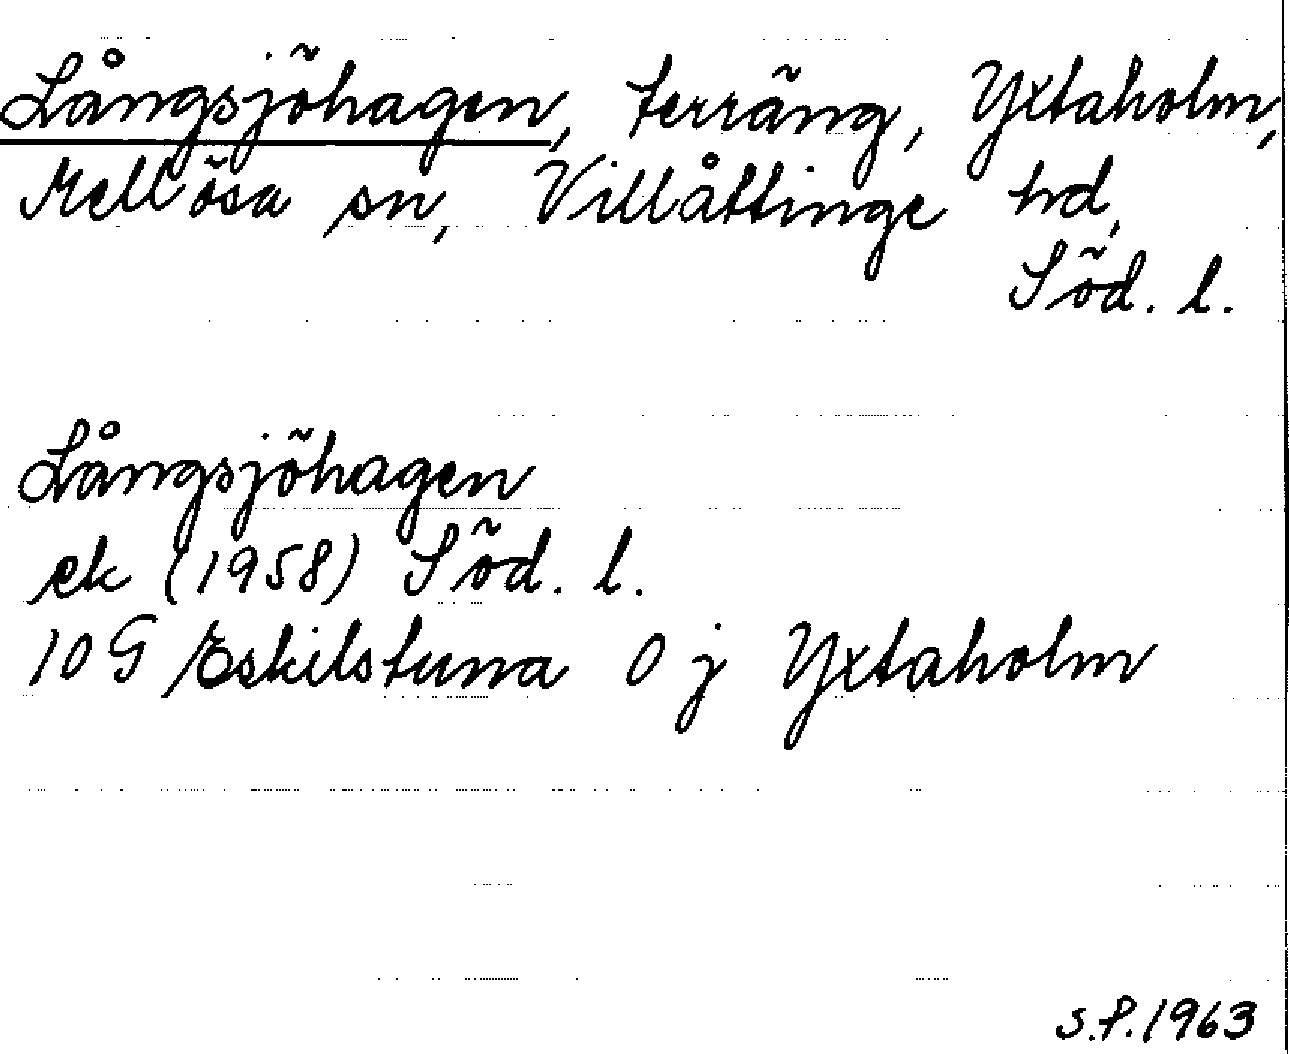 Långsjöhagen, terräng, Yxtaholm,
Mellösa sn, Villåttinge hd,
Söd. l.
Långsjöhagen
ek (1958) Söd. l.
10 G Eskilstuna 0 j Yxtaholm
S.P. 1963